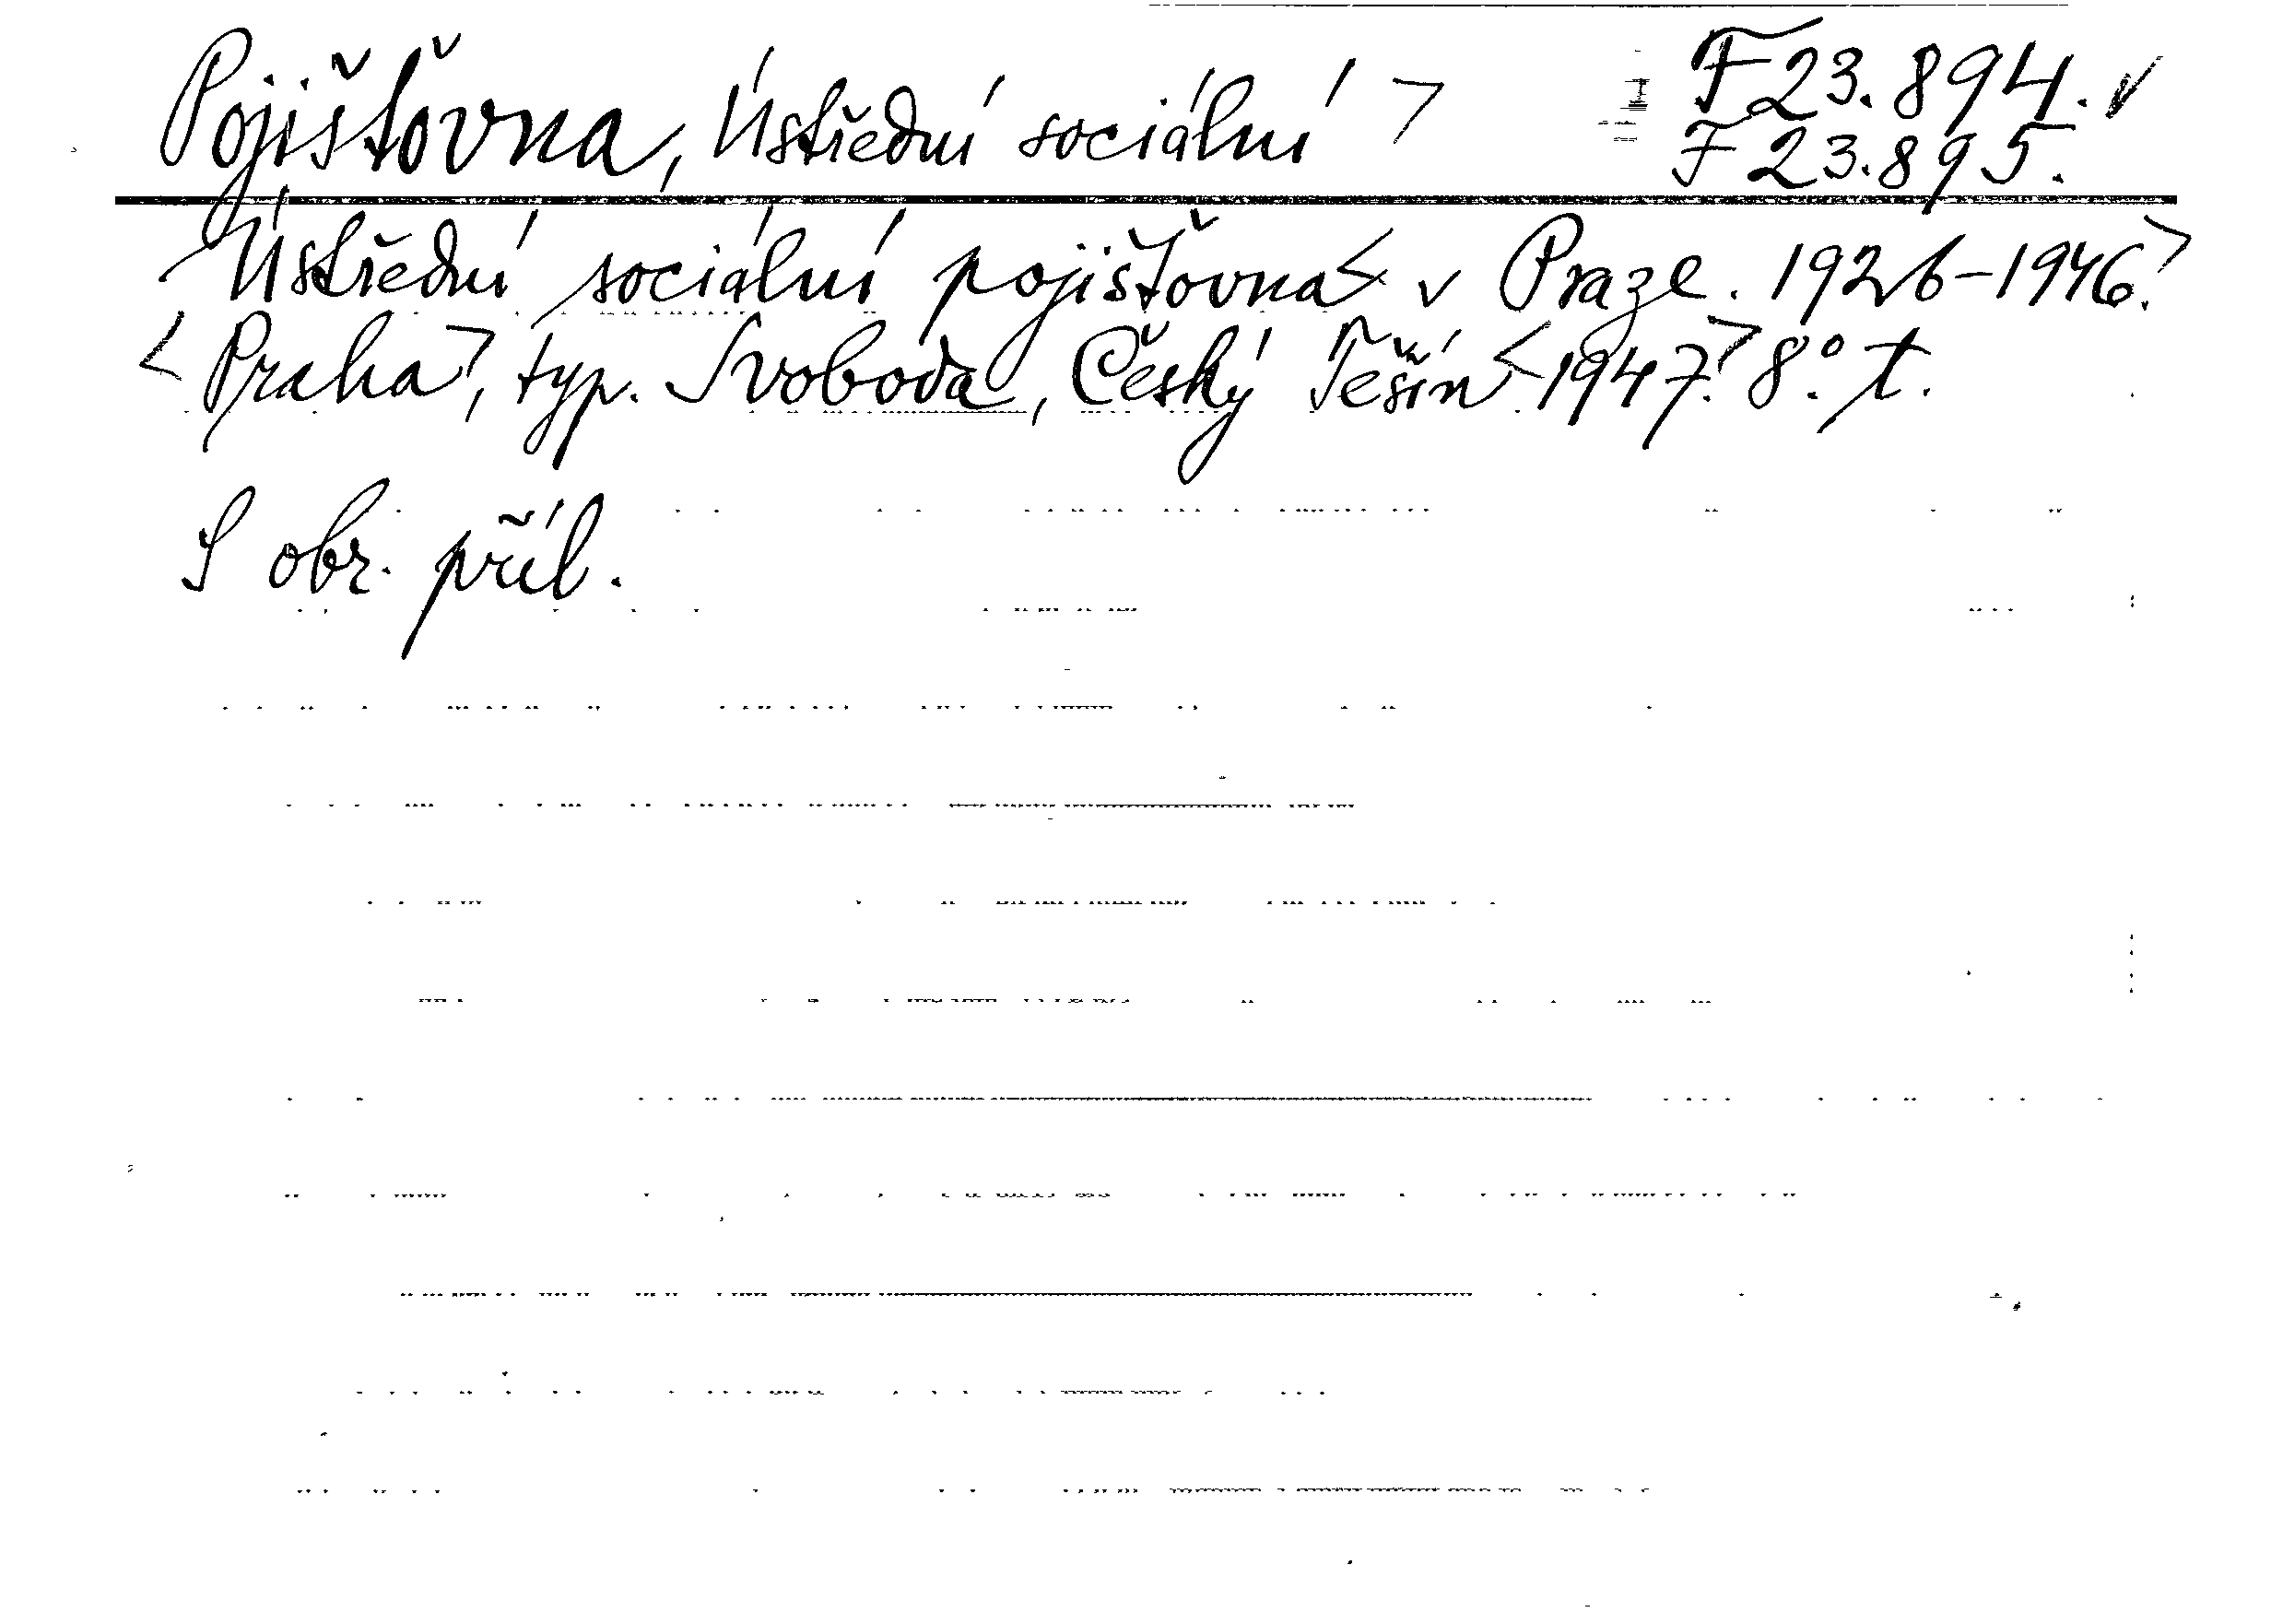 Pojišťovna, Ústřední sociální > F 23.894. ✓
F 23.895.
Ústřední sociální pojišťovna < v Praze. 1926-1946.>
<Praha>, typ. Svoboda, Český Těšín <1947.> 8.° t.
S obr. příl.